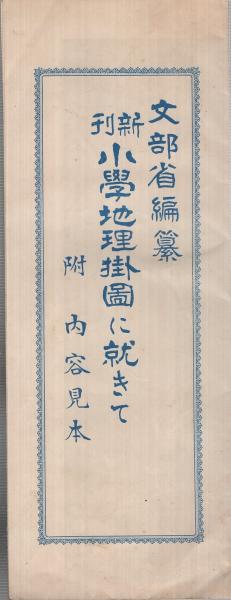 文部省編纂
新刊小學地理掛圖に就きて
附 内容見本